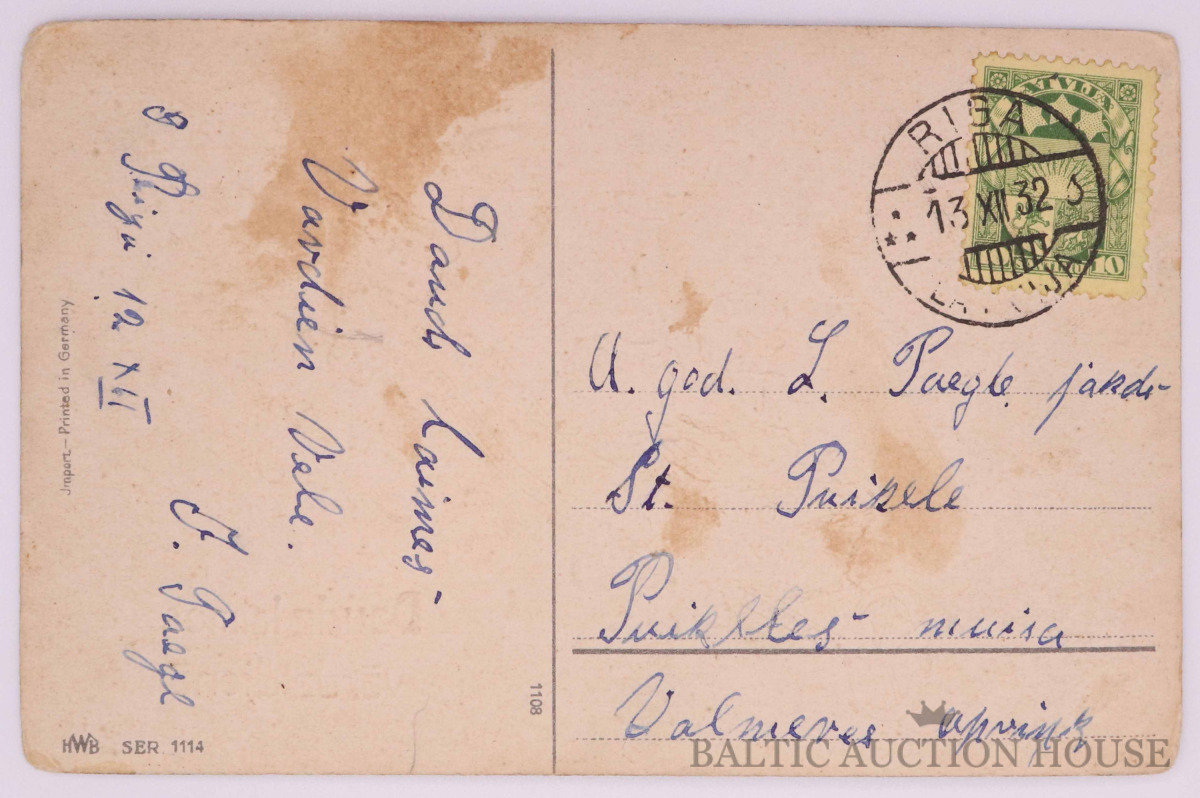 Daudz Laimes
Vārdien Vēle.
J. Paegl
Rīgā 12 XII
Import – Printed in Germany
HWB SER 1114
1108
LATVIJA
10
RIGA
13 XII 32
LATVIJA
A. god. L. Paegle jakds-
St. Puikele
Puikeles muiža
Valmeras apriņķ
BALTIC AUCTION HOUSE